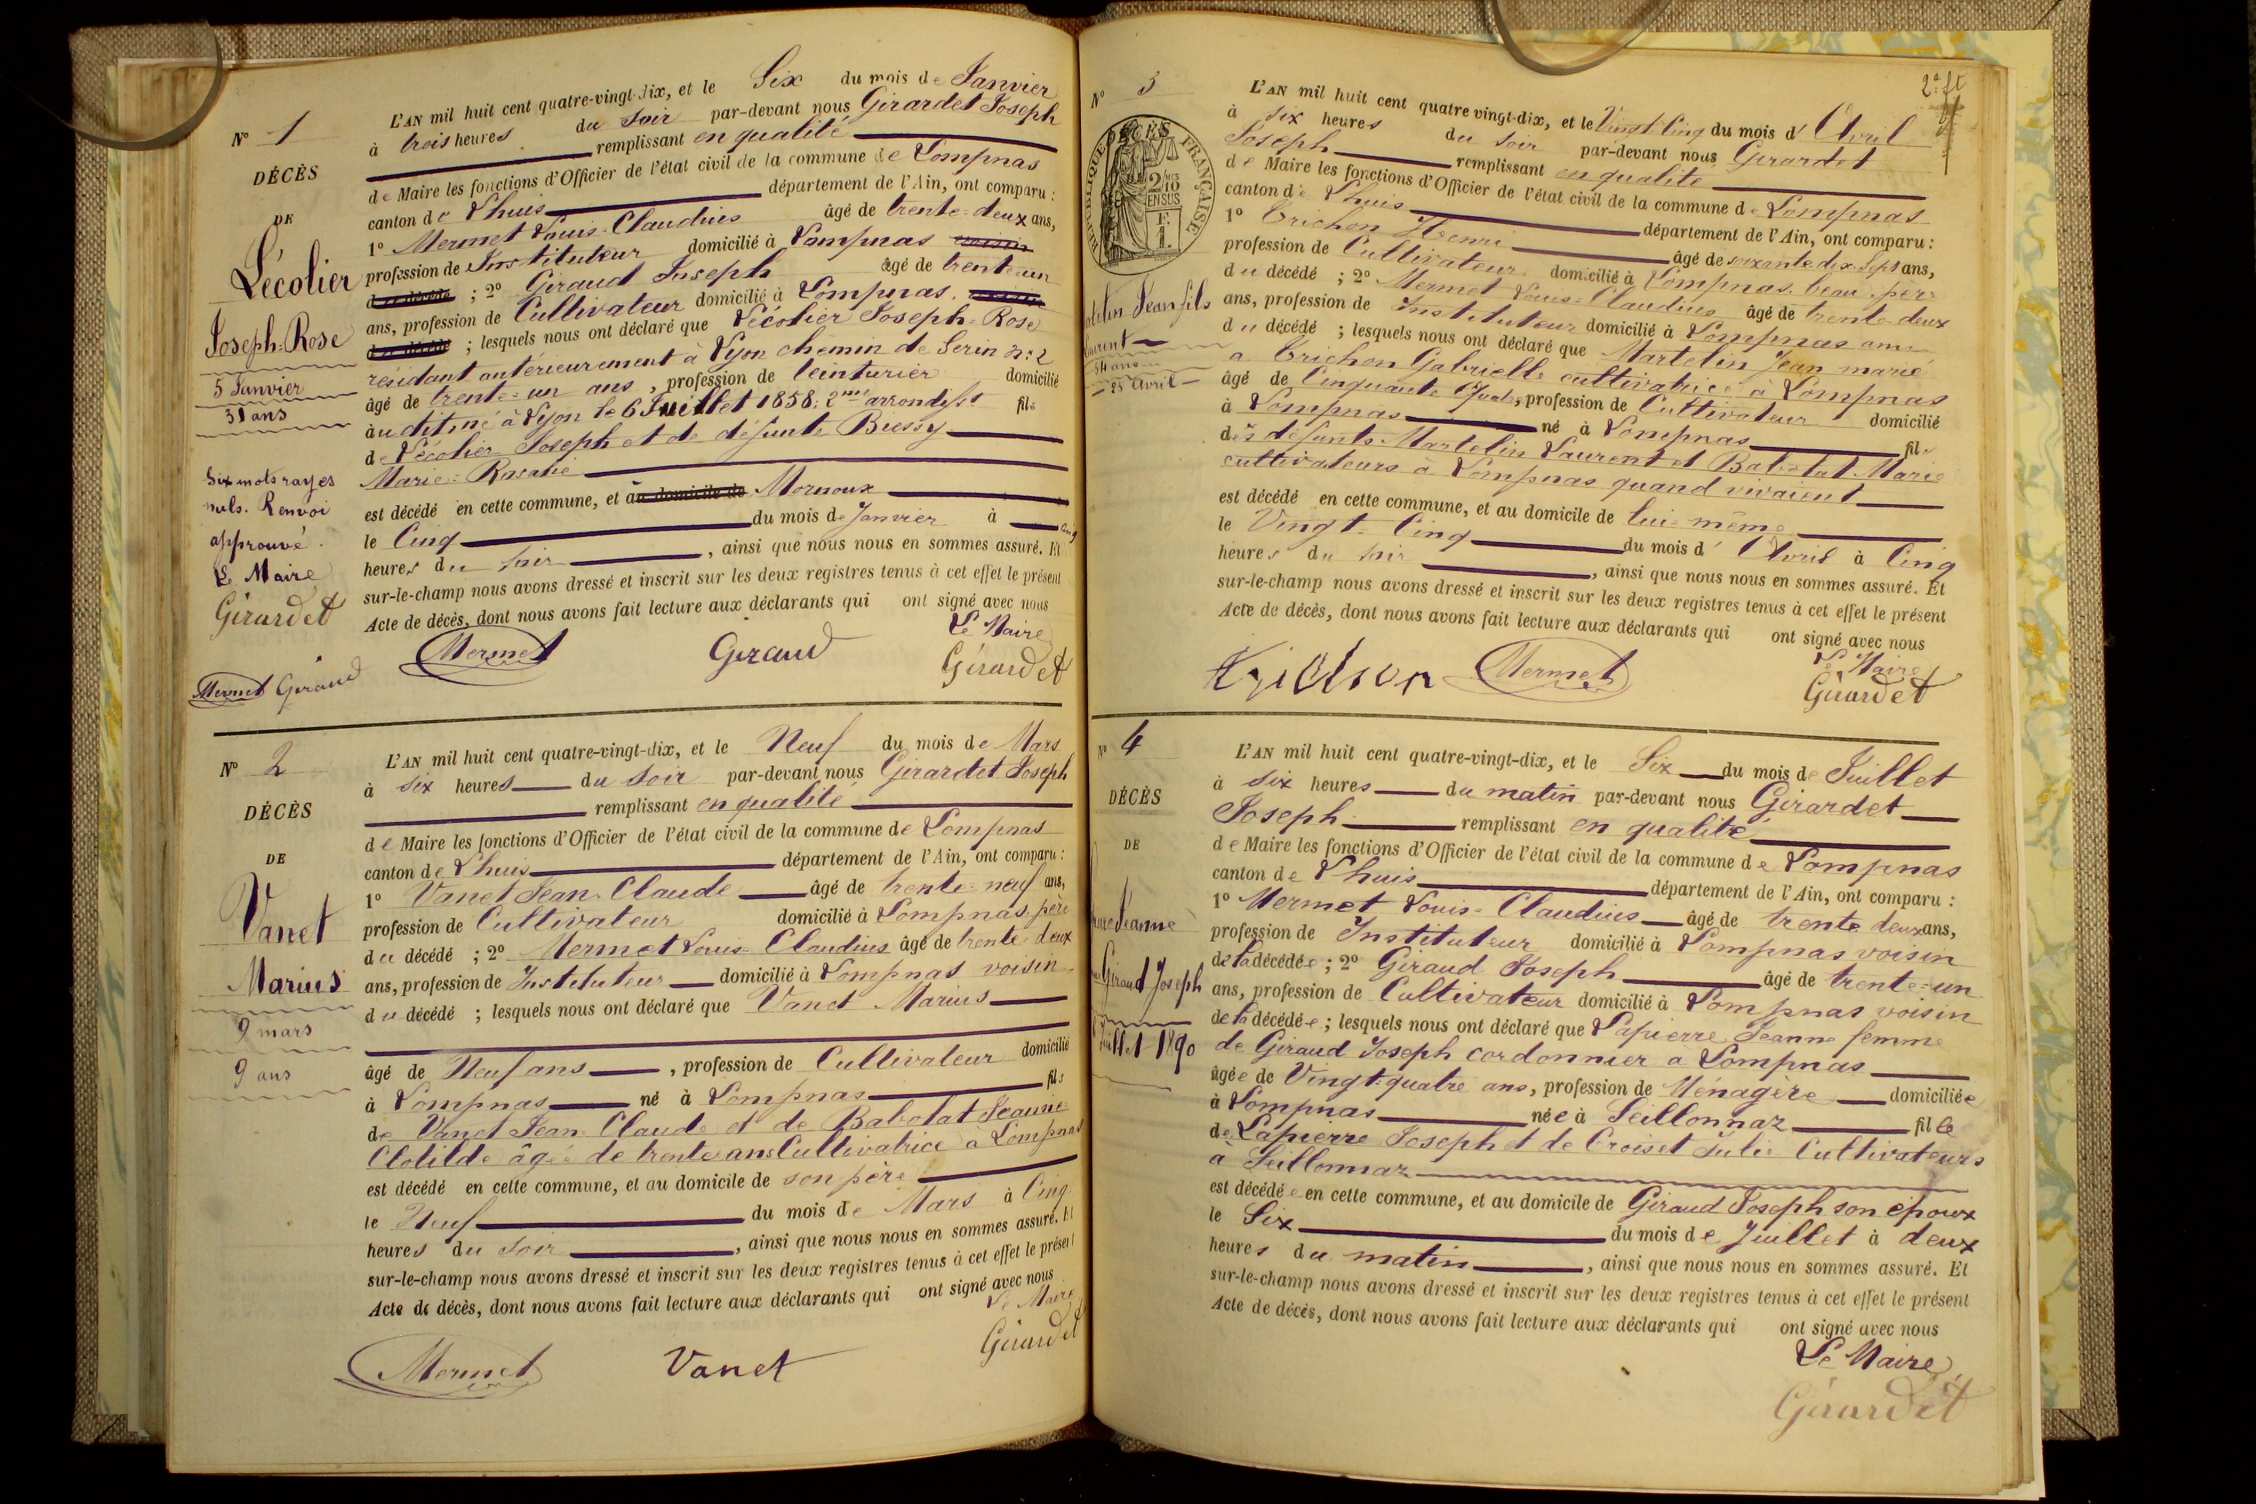 N° 1
DÉCÈS
DE
Lécolier
Joseph-Rose
5 Janvier
31 ans
Six mots rayés
nuls. Renvoi
approuvé.
Le Maire
Girardet
Mermet Giraud
L'AN mil huit cent quatre-vingt-dix, et le Six du mois de Janvier
à trois heures du soir par-devant nous Girardet Joseph
remplissant en qualité
de Maire les fonctions d'Officier de l'état civil de la commune de Lompnas
canton de Lhuis département de l'Ain, ont comparu :
1° Mermet Louis-Claudius âgé de trente-deux ans,
profession de Instituteur domicilié à Lompnas voisin
du décédé ; 2° Giraud Joseph âgé de trente-un
ans, profession de Cultivateur domicilié à Lompnas.
du décédé ; lesquels nous ont déclaré que Lécolier Joseph-Rose
résidant antérieurement à Lyon chemin de Serin n: 2
âgé de trente-un ans, profession de teinturier domicilié
au dit né à Lyon le 6 Juillet 1858, 2me arrondisst fils
de Lécolier Joseph et de défunte Biessy
Marie-Rosalie
est décédé en cette commune, et au domicile de Mornoux
le Cinq du mois de Janvier à cinq
heures du soir, ainsi que nous nous en sommes assuré. Et
sur-le-champ nous avons dressé et inscrit sur les deux registres tenus à cet effet le présent
Acte de décès, dont nous avons fait lecture aux déclarants qui ont signé avec nous
Le Maire
Mermet Giraud Girardet
N° 2
DÉCÈS
DE
Vanet
Marius
9 mars
9 ans
L'AN mil huit cent quatre-vingt-dix, et le Neuf du mois de Mars
à six heures du soir par-devant nous Girardet Joseph
remplissant en qualité
de Maire les fonctions d'Officier de l'état civil de la commune de Lompnas
canton de Lhuis département de l'Ain, ont comparu :
1° Vanet Jean-Claude âgé de trente-neuf ans,
profession de Cultivateur domicilié à Lompnas, père
du décédé ; 2° Mermet Louis-Claudius âgé de trente-deux
ans, profession de Instituteur domicilié à Lompnas voisin
du décédé ; lesquels nous ont déclaré que Vanet Marius
âgé de Neuf ans, profession de Cultivateur domicilié
à Lompnas né à Lompnas fils
de Vanet Jean-Claude et de Babolat Jeanne
Clotilde âgée de trente ans Cultivatrice à Lompnas
est décédé en cette commune, et au domicile de son père
le Neuf du mois de Mars à Cinq
heures du soir, ainsi que nous nous en sommes assuré. Et
sur-le-champ nous avons dressé et inscrit sur les deux registres tenus à cet effet le présent
Acte de décès, dont nous avons fait lecture aux déclarants qui ont signé avec nous
Le Maire
Girardet
Mermet Vanet
2e ft
N° 3
DÉCÈS
RÉPUBLIQUE FRANÇAISE
2/10 EN SUS
Jean fils
Laurent
54 ans
25 avril
L'AN mil huit cent quatre vingt-dix, et le Vingt-Cinq du mois d'Avril
à six heures du soir par-devant nous Girardet
Joseph remplissant en qualité
de Maire les fonctions d'Officier de l'état civil de la commune de Lompnas
canton de Lhuis département de l'Ain, ont comparu :
1° Crichon Henri âgé de soixante-dix-sept ans,
profession de Cultivateur domicilié à Lompnas beau-père
du décédé ; 2° Mermet Louis-Claudius âgé de trente-deux
ans, profession de Instituteur domicilié à Lompnas ami
du décédé ; lesquels nous ont déclaré que Martelin Jean marié
à Crichon Gabrielle cultivatrice à Lompnas
âgé de Cinquante Quatre, profession de Cultivateur domicilié
à Lompnas né à Lompnas fils
des défunts Martelin Laurent et Babolat Marie
cultivateurs à Lompnas quand vivaient
est décédé en cette commune, et au domicile de lui-même
le Vingt-Cinq du mois d'Avril à Cinq
heures du soir, ainsi que nous nous en sommes assuré. Et
sur-le-champ nous avons dressé et inscrit sur les deux registres tenus à cet effet le présent
Acte de décès, dont nous avons fait lecture aux déclarants qui ont signé avec nous
Le Maire
Mermet Girardet
N° 4
DÉCÈS
DE
Jeanne
Giraud Joseph
Juillet 1890
L'AN mil huit cent quatre-vingt-dix, et le Six du mois de Juillet
à six heures du matin par-devant nous Girardet
Joseph remplissant en qualité
de Maire les fonctions d'Officier de l'état civil de la commune de Lompnas
canton de Lhuis département de l'Ain, ont comparu :
1° Mermet Louis-Claudius âgé de trente deux ans,
profession de Instituteur domicilié à Lompnas voisin
de la décédée ; 2° Giraud Joseph âgé de trente-un
ans, profession de Cultivateur domicilié à Lompnas voisin
de la décédée ; lesquels nous ont déclaré que Lapierre Jeanne femme
de Giraud Joseph cordonnier à Lompnas
âgée de Vingt-quatre ans, profession de Ménagère domiciliée
à Lompnas née à Seillonnaz fille
de Lapierre Joseph et de Croiset Julie Cultivateurs
à Seillonnaz
est décédée en cette commune, et au domicile de Giraud Joseph son époux
le Six du mois de Juillet à deux
heures du matin, ainsi que nous nous en sommes assuré. Et
sur-le-champ nous avons dressé et inscrit sur les deux registres tenus à cet effet le présent
Acte de décès, dont nous avons fait lecture aux déclarants qui ont signé avec nous
Le Maire
Girardet